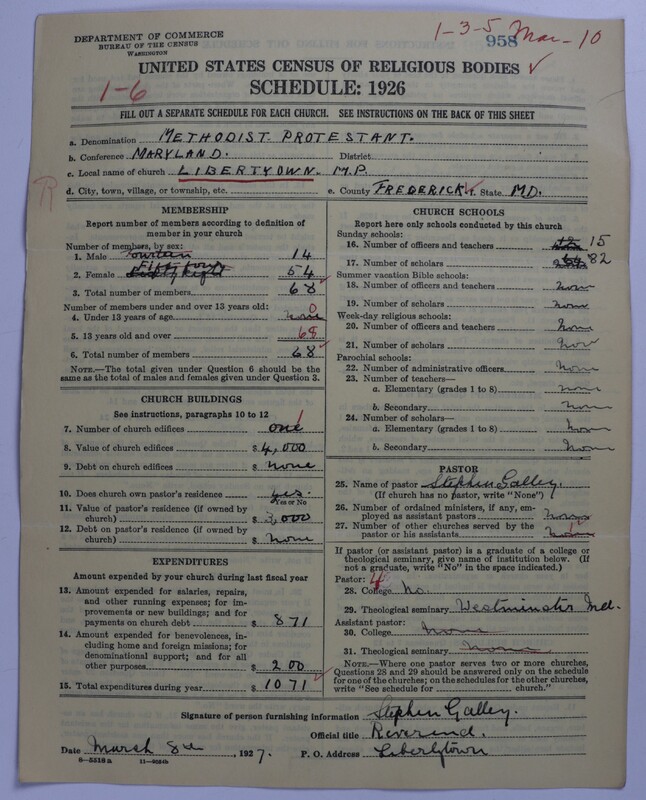 DEPARTMENT OF COMMERCE
BUREAU OF THE CENSUS
WASHINGTON
1-3-5 Mar-10
958
UNITED STATES CENSUS OF RELIGIOUS BODIES
1-6
SCHEDULE: 1926
FILL OUT A SEPARATE SCHEDULE FOR EACH CHURCH. SEE INSTRUCTIONS ON THE BACK OF THIS SHEET
a. Denomination METHODIST PROTESTANT.
b. Conference MARYLAND. District
c. Local name of church LIBERTYOWN. M.P.
R
d. City, town, village, or township, etc. e. County FREDERICK f. State MD.
MEMBERSHIP
Report number of members according to definition of
member in your church
Number of members, by sex:
1. Male fourteen 14
2. Female Fifty four 54
3. Total number of members 68
Number of members under and over 13 years old:
4. Under 13 years of age none 0
5. 13 years old and over 68
6. Total number of members 68
NOTE.—The total given under Question 6 should be
the same as the total of males and females given under Question 3.
CHURCH BUILDINGS
See instructions, paragraphs 10 to 12
7. Number of church edifices one 1
8. Value of church edifices $ 4,000
9. Debt on church edifices $ none
10. Does church own pastor's residence yes.
Yes or No
11. Value of pastor's residence (if owned by
church) $ 3,000
12. Debt on pastor's residence (if owned by
church) $ none
EXPENDITURES
Amount expended by your church during last fiscal year
13. Amount expended for salaries, repairs,
and other running expenses; for im-
provements or new buildings; and for
payments on church debt $ 871
14. Amount expended for benevolences, in-
cluding home and foreign missions; for
denominational support; and for all
other purposes $ 200
15. Total expenditures during year $ 1071
CHURCH SCHOOLS
Report here only schools conducted by this church
Sunday schools:
16. Number of officers and teachers 15
17. Number of scholars 82
Summer vacation Bible schools:
18. Number of officers and teachers none
19. Number of scholars none
Week-day religious schools:
20. Number of officers and teachers none
21. Number of scholars none
Parochial schools:
22. Number of administrative officers none
23. Number of teachers—
a. Elementary (grades 1 to 8) none
b. Secondary none
24. Number of scholars—
a. Elementary (grades 1 to 8) none
b. Secondary none
PASTOR
25. Name of pastor Stephen Galley.
(If church has no pastor, write "None")
26. Number of ordained ministers, if any, em-
ployed as assistant pastors none
27. Number of other churches served by the
pastor or his assistants
If pastor (or assistant pastor) is a graduate of a college or
theological seminary, give name of institution below. (If
not a graduate, write "No" in the space indicated.)
Pastor: 4
28. College No.
29. Theological seminary Westminster Md.
Assistant pastor:
30. College None
31. Theological seminary None
NOTE.—Where one pastor serves two or more churches,
Questions 28 and 29 should be answered only on the schedule
for one of the churches; on the schedules for the other churches,
write "See schedule for church."
Signature of person furnishing information Stephen Galley.
Official title Reverend.
Date March 8th 1927. P. O. Address Libertytown
8-5518a 11-9024b